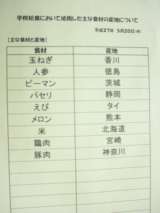 学校給食において使用した主な食材の産地について
平成27年 5月20日(水)
【主な食材と産地】
食材 産地
玉ねぎ 香川
人参 徳島
ピーマン 茨城
パセリ 静岡
えび タイ
メロン 熊本
米 北海道
鶏肉 宮崎
豚肉 神奈川